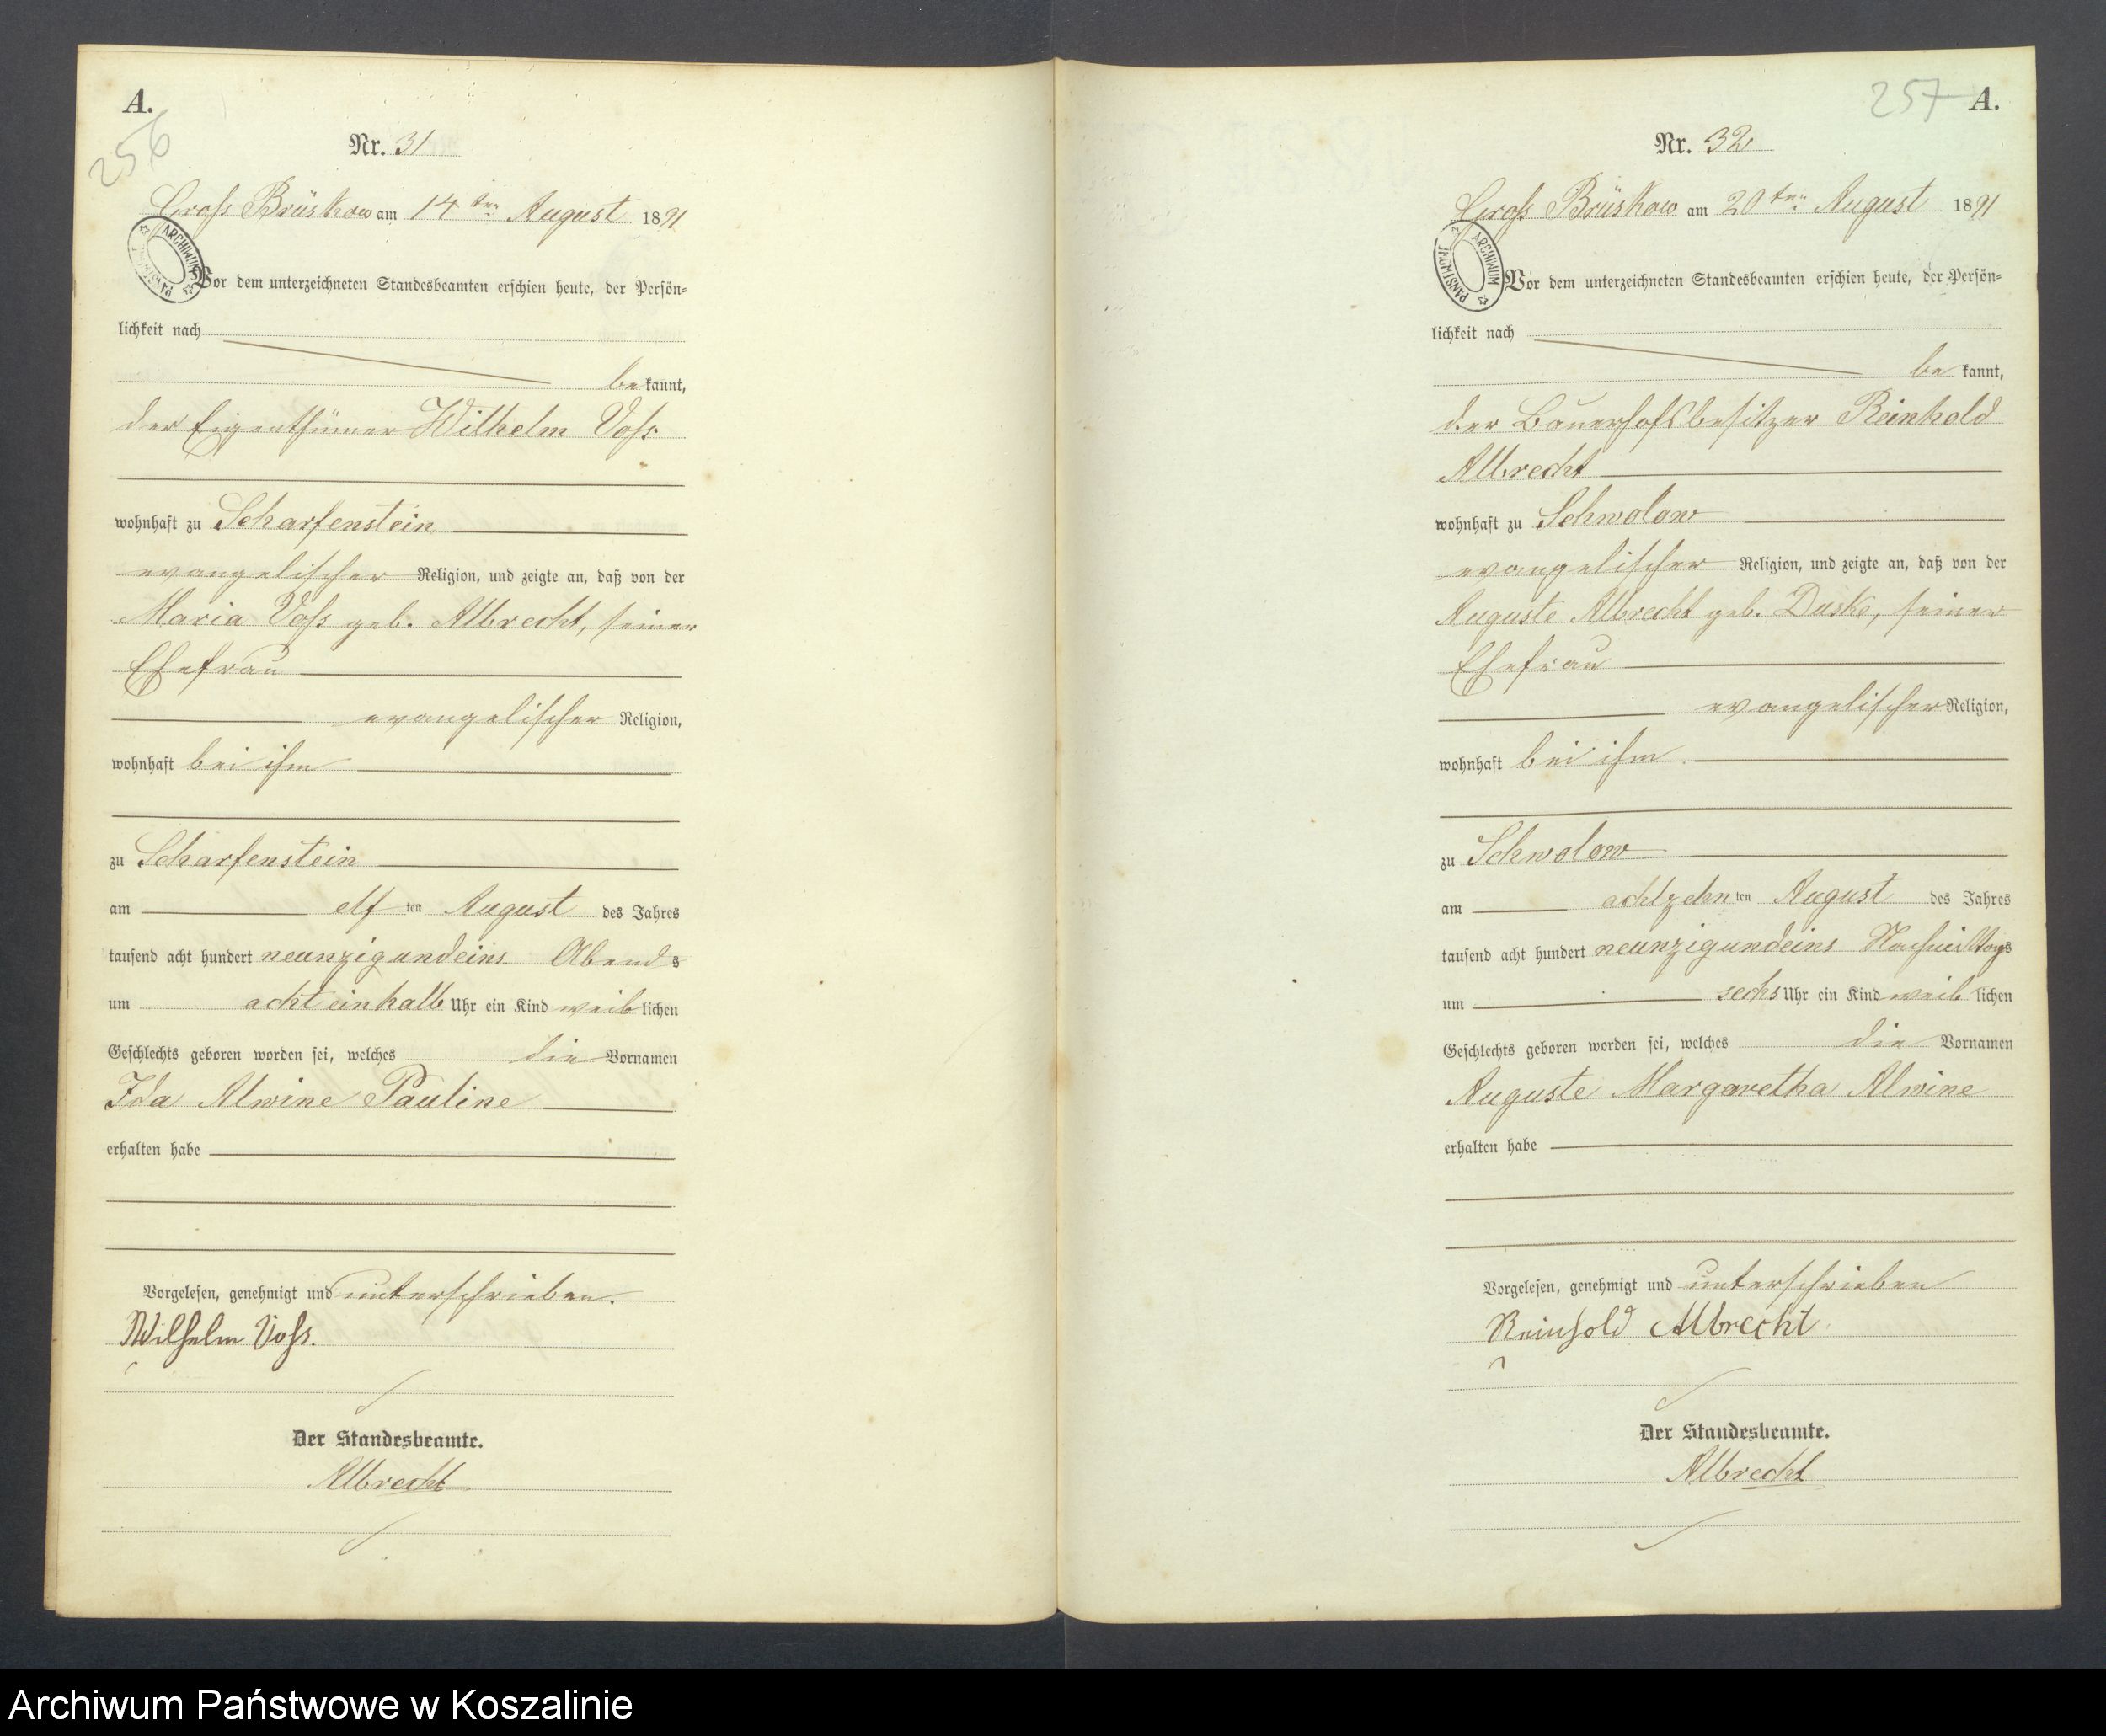 A.
256
Nr. 31
Groß Brüskow am 14ten August 1891
ARCHIWUM PAŃSTWOWE
Vor dem unterzeichneten Standesbeamten erschien heute, der Persön-
lichkeit nach
bekannt,
der Eigenthümer Wilhelm Voß
wohnhaft zu Scharfenstein
evangelischer Religion, und zeigte an, daß von der
Maria Voß geb. Albrecht, seiner
Ehefrau
evangelischer Religion,
wohnhaft bei ihm
zu Scharfenstein
am elften August des Jahres
tausend acht hundert neunzigundeins Abends
um achteinhalb Uhr ein Kind weiblichen
Geschlechts geboren worden sei, welches die Vornamen
Ida Alwine Pauline
erhalten habe
Vorgelesen, genehmigt und unterschrieben.
Wilhelm Voß.
Der Standesbeamte.
Albrecht
257 A.
Nr. 32
Groß Brüskow am 20ten August 1891
ARCHIWUM PAŃSTWOWE
Vor dem unterzeichneten Standesbeamten erschien heute, der Persön-
lichkeit nach
bekannt,
der Bauerhofsbesitzer Reinhold
Albrecht
wohnhaft zu Schwolow
evangelischer Religion, und zeigte an, daß von der
Auguste Albrecht geb. Duske, seiner
Ehefrau
evangelischer Religion,
wohnhaft bei ihm
zu Schwolow
am achtzehnten August des Jahres
tausend acht hundert neunzigundeins Nachmittags
um sechs Uhr ein Kind weiblichen
Geschlechts geboren worden sei, welches die Vornamen
Auguste Margaretha Alwine
erhalten habe
Vorgelesen, genehmigt und unterschrieben
Reinhold Albrecht
Der Standesbeamte.
Albrecht
Archiwum Państwowe w Koszalinie